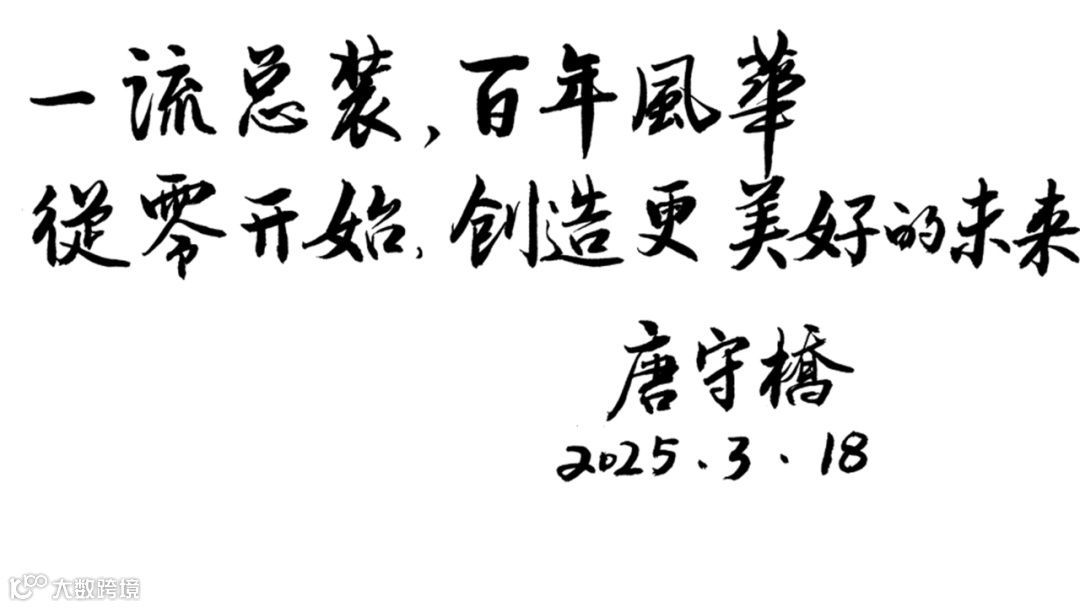 一流总装,百年風華
從零开始,创造更美好的未来
唐守橋
2025.3.18
大数跨境